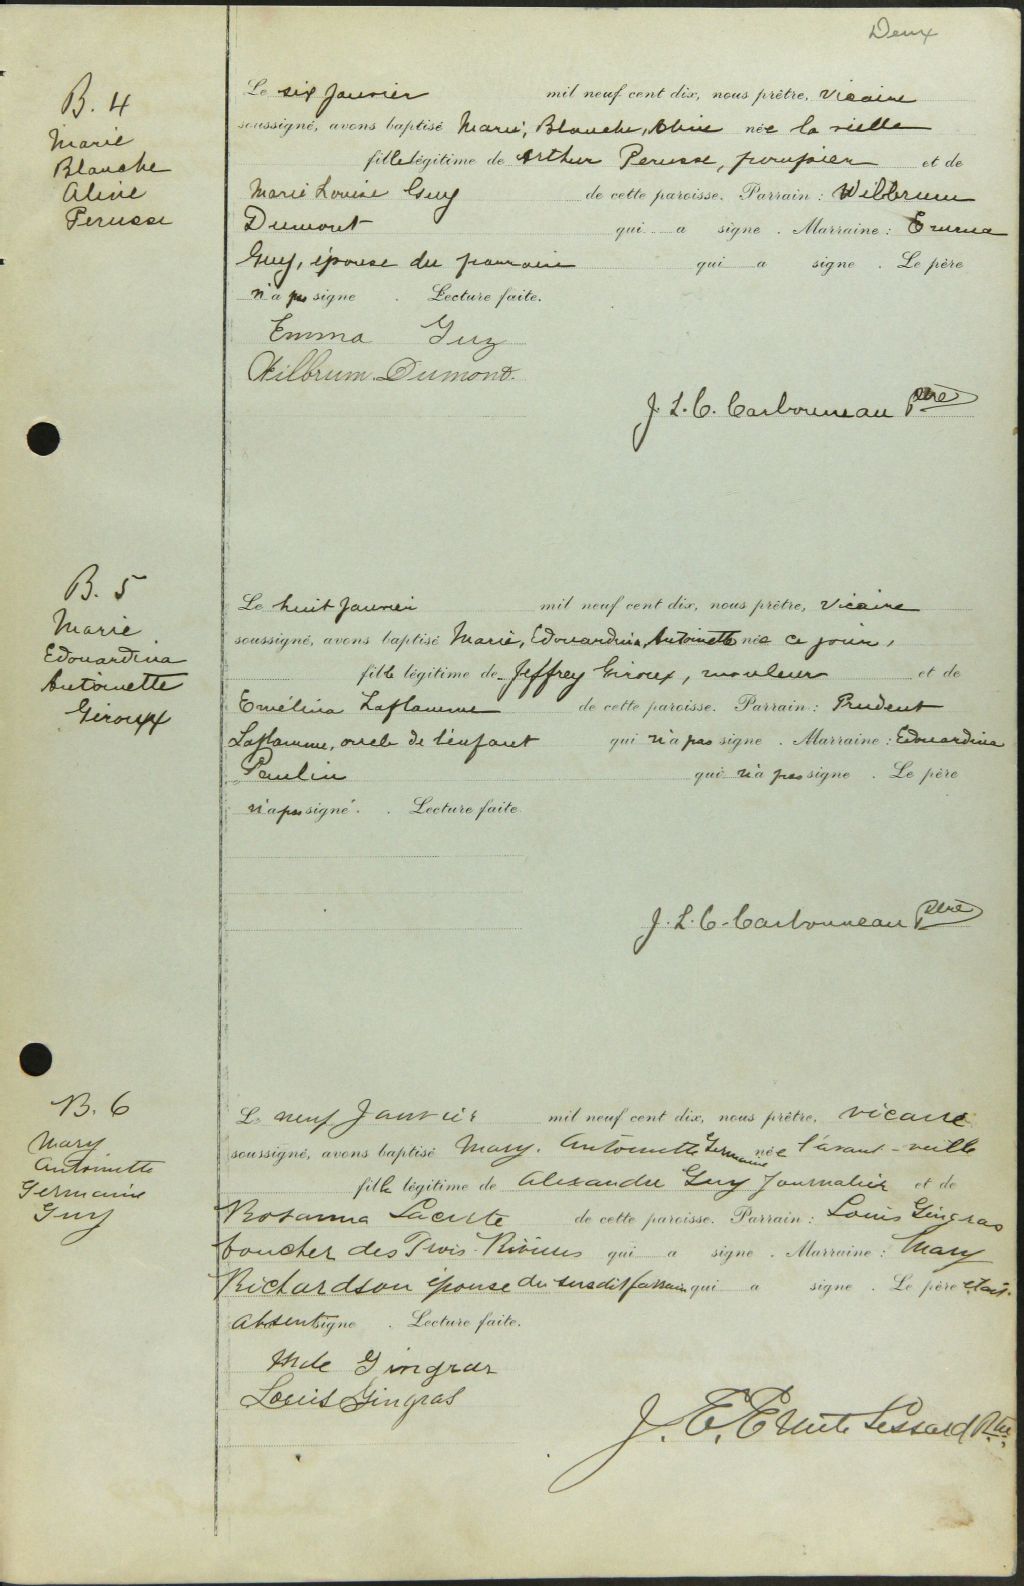 Deux
B. 4
Marie
Blanche
Aline
Perusse
Le six Janvier mil neuf cent dix, nous prêtre, vicaire
soussigné, avons baptisé Marie, Blanche, Aline née la veille
fille légitime de Arthur Perusse, pompier et de
Marie Louise Guy de cette paroisse. Parrain : Wilbrum
Dumont qui a signé. Marraine : Emma
Guy, épouse du parrain qui a signé. Le père
n'a pas signé. Lecture faite.
Emma Guy
Wilbrum Dumont.
J. L. C. Carbonneau Ptre
B. 5
Marie
Edouardina
Antoinette
Giroux
Le huit Janvier mil neuf cent dix, nous prêtre, vicaire
soussigné, avons baptisé Marie, Edouardina, Antoinette née ce jour,
fille légitime de Jeffrey Giroux, mouleur et de
Emélina Laflamme de cette paroisse. Parrain : Prudent
Laflamme, oncle de l'enfant qui n'a pas signé. Marraine : Edouardina
Paulin qui n'a pas signé. Le père
n'a pas signé. Lecture faite
J. L. C. Carbonneau Ptre
B. 6
Mary
Antoinette
Germaine
Guy
Le neuf Janvier mil neuf cent dix, nous prêtre, vicaire
soussigné, avons baptisé Mary. Antoinette Germaine née l'avant-veille
fille légitime de Alexandre Guy Journalier et de
Rosanna Lacerte de cette paroisse. Parrain : Louis Gingras
boucher des Trois-Rivières qui a signé. Marraine : Mary
Richardson épouse du susdit parrain qui a signé. Le père était
absent signé. Lecture faite.
Mde Gingras
Louis Gingras
J. E. Emile Lessard Ptre